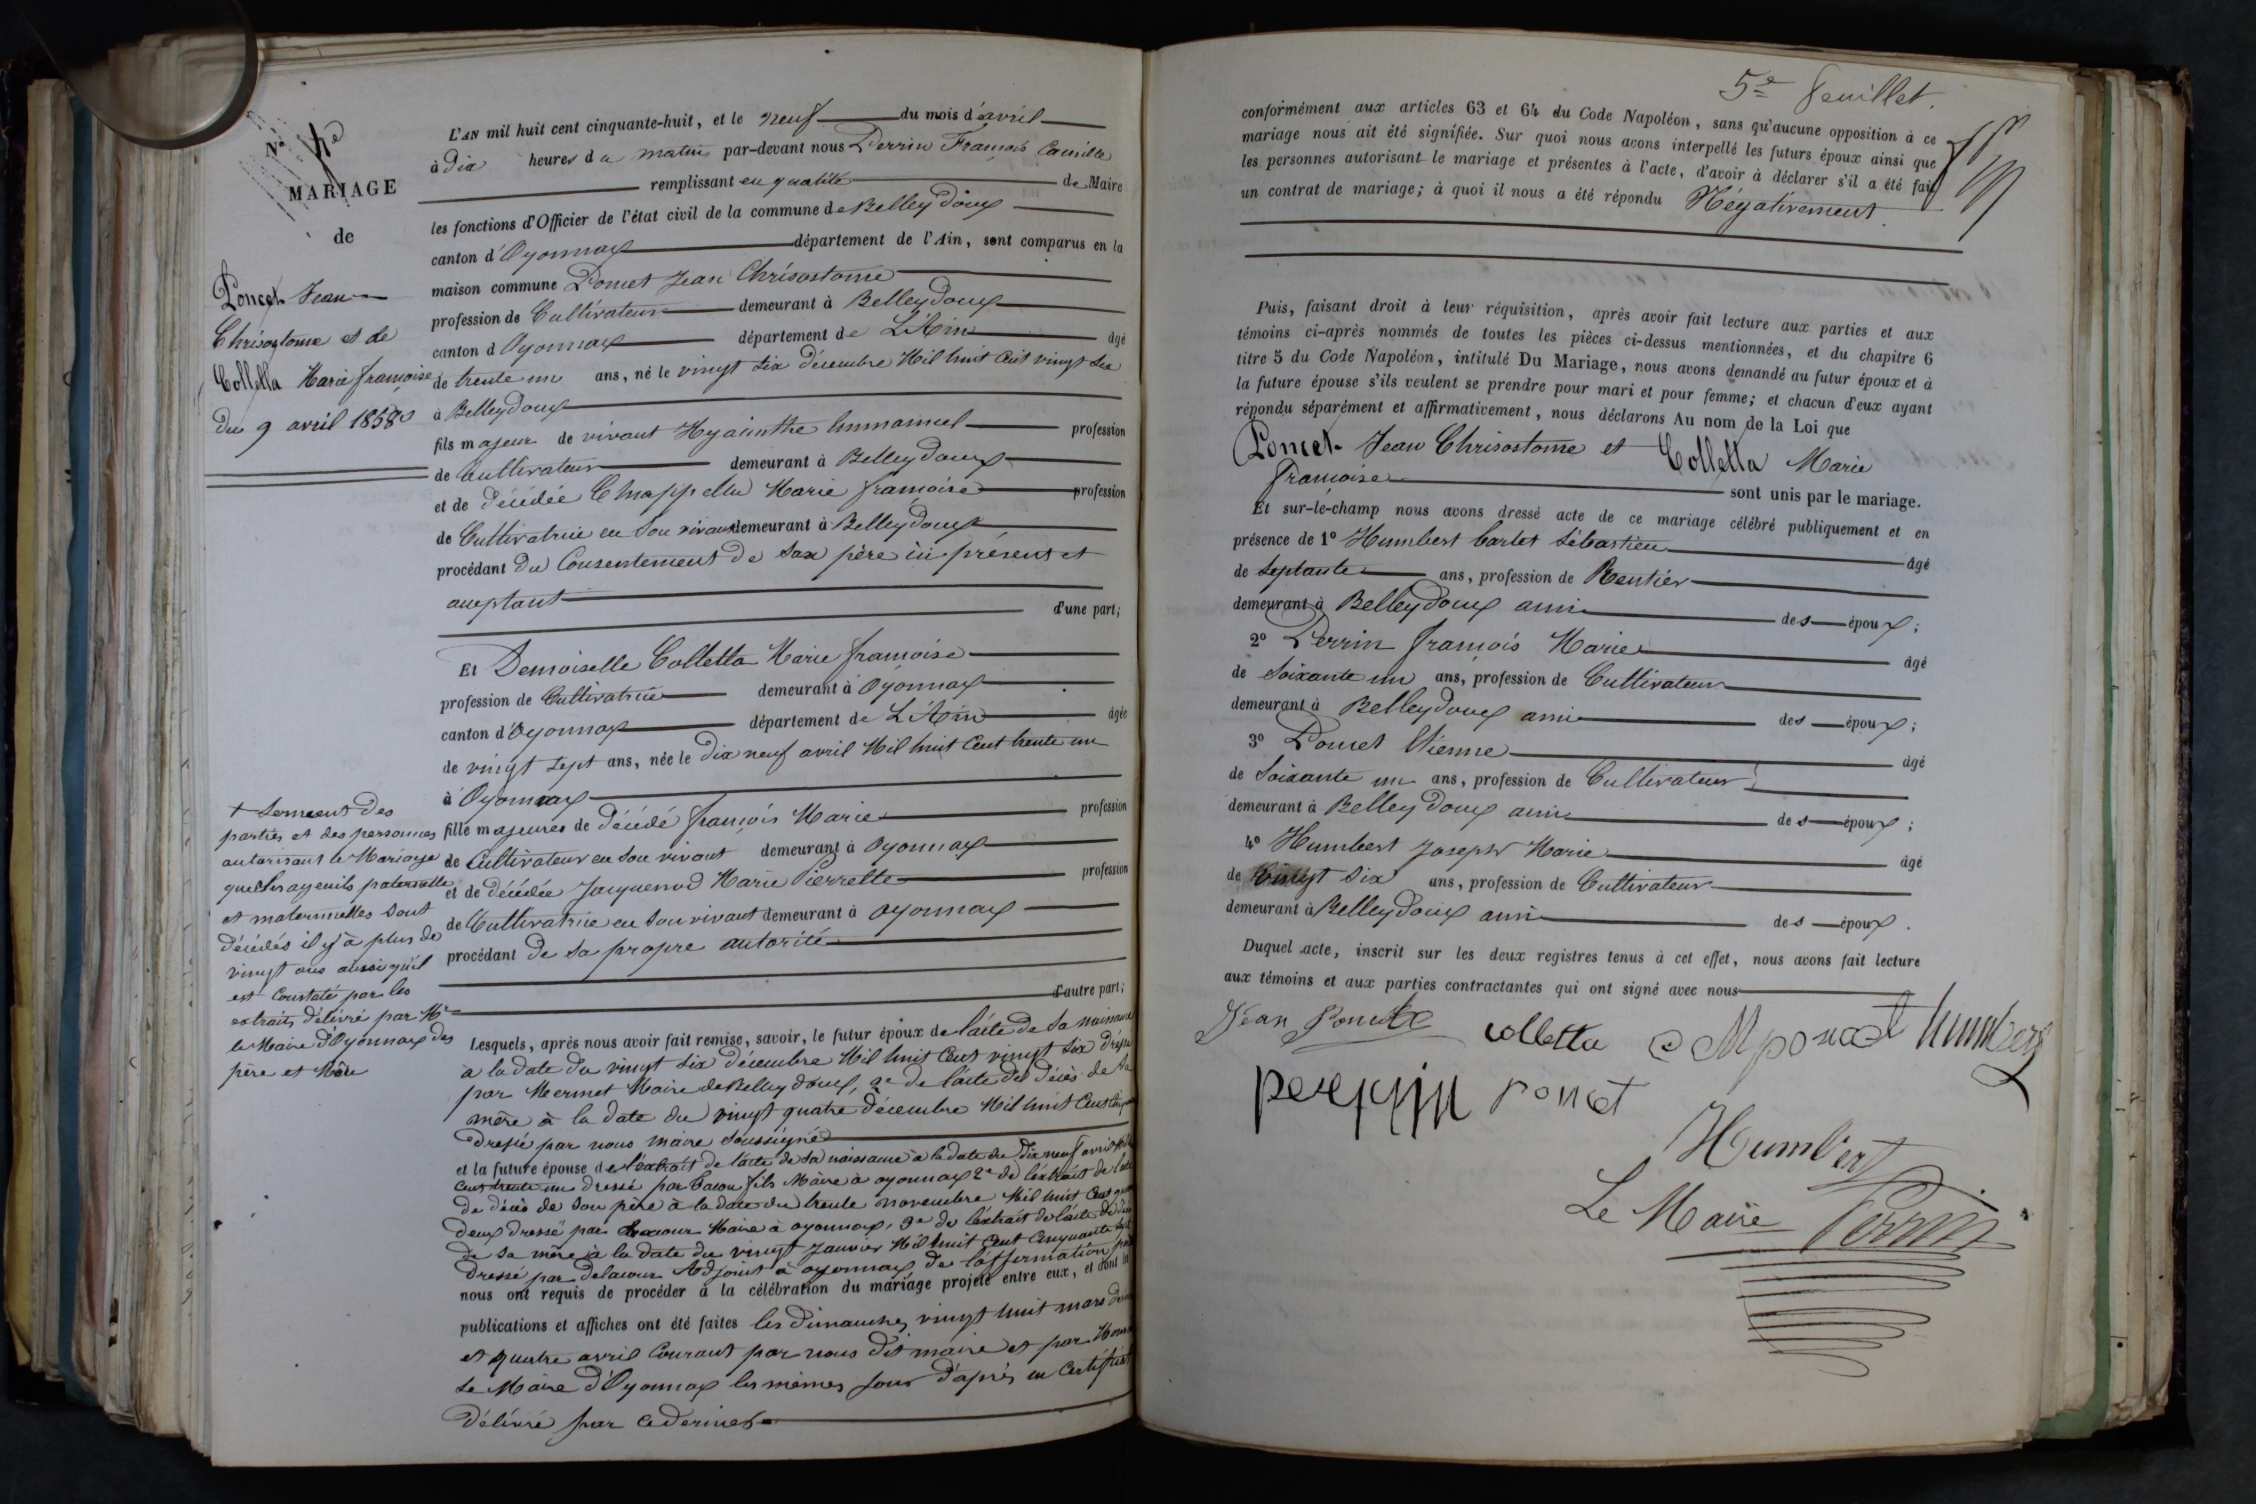 N° 4e
MARIAGE
de
Poncet Jean
Chrisostome et de
Colletta Marie françoise
du 9 avril 1858
L'AN mil huit cent cinquante-huit, et le neuf du mois d'avril
à dix heures du matin par-devant nous Perrin François Camille
remplissant en qualité de Maire
les fonctions d'Officier de l'état civil de la commune de Belleydoux
canton d'Oyonnax département de l'Ain, sont comparus en la
maison commune Poncet Jean Chrisostome
profession de Cultivateur demeurant à Belleydoux
canton d Oyonnax département de L'Ain âgé
de trente un ans, né le vingt six décembre Mil huit Cent vingt six
à Belleydoux
fils majeur de vivant Hyacinthe Emmanuel profession
de Cultivateur demeurant à Belleydoux
et de décédée Chappellu Marie françoise profession
de Cultivatrice en Son vivant demeurant à Belleydoux
procédant du Consentement de Son père ici présent et
acceptant
d'une part;
Et Demoiselle Colletta Marie françoise
profession de Cultivatrice demeurant à Oyonnax
canton d'Oyonnax département de L'Ain âgée
de vingt sept ans, née le dix neuf avril Mil huit Cent trente un
à Oyonnax
fille majeures de décédé françois Marie profession
de Cultivateur en Son vivant demeurant à Oyonnax
et de décédée Jacquenod Marie Pierrette profession
de Cultivatrice en Son vivant demeurant à Oyonnax
procédant de Sa propre autorité
d'autre part;
+ Serment des
parties et des personnes
autorisant le Mariage
que les ayeuils paternelle
et maternelles Sont
décédés il y a plus de
vingt ans ainsi qu'il
est Constaté par les
extraits délivré par Mr
le Maire d'Oyonnax des
père et Mère
Lesquels, après nous avoir fait remise, savoir, le futur époux de l'acte de Sa naissance
à la date du vingt Six décembre Mil huit Cent vingt Six dressé
par Mermet Maire de Belleydoux, 2e de l'acte de décès de Sa
mère à la date du vingt quatre décembre Mil huit Cent
dressé par nous maire Soussigné
et la future épouse de l'extrait de l'acte de Sa naissance à la date du Dix neuf avril
Cent trente un dressé par fils Maire à oyonnax 2e de l'extrait de l'acte
de décès de Son père à la date du trente novembre Mil huit Cent
deux dressé par Maire à oyonnax, 3e de l'extrait de l'acte de décès
de Sa mère à la date du vingt Janvier Mil huit Cent Cinquante
dressé par Delacour Adjoint à oyonnax de l'affirmation
nous ont requis de procéder à la célébration du mariage projeté entre eux, et dont
publications et affiches ont été faites les dimanches vingt huit mars
et quatre avril Courant par nous dit maire et par
Le Maire d'Oyonnax les mêmes Jour d'après un Certificat
délivré par ce dernier
5e feuillet.
conformément aux articles 63 et 64 du Code Napoléon, sans qu'aucune opposition à ce
mariage nous ait été signifiée. Sur quoi nous avons interpellé les futurs époux ainsi que
les personnes autorisant le mariage et présentes à l'acte, d'avoir à déclarer s'il a été fait
un contrat de mariage; à quoi il nous a été répondu Négativement
Puis, faisant droit à leur réquisition, après avoir fait lecture aux parties et aux
témoins ci-après nommés de toutes les pièces ci-dessus mentionnées, et du chapitre 6
titre 5 du Code Napoléon, intitulé Du Mariage, nous avons demandé au futur époux et à
la future épouse s'ils veulent se prendre pour mari et pour femme; et chacun d'eux ayant
répondu séparément et affirmativement, nous déclarons Au nom de la Loi que
Poncet Jean Chrisostome et Colletta Marie
françoise sont unis par le mariage.
Et sur-le-champ nous avons dressé acte de ce mariage célébré publiquement et en
présence de 1° Humbert Carlet Sébastien âgé
de Septante ans, profession de Rentier
demeurant à Belleydoux ami des époux;
2° Perrin françois Marie âgé
de Soixante un ans, profession de Cultivateur
demeurant à Belleydoux ami des époux;
3° Poncet Etienne âgé
de Soixante un ans, profession de Cultivateur
demeurant à Belleydoux ami des époux;
4° Humbert Joseph Marie âgé
de Vingt Six ans, profession de Cultivateur
demeurant à Belleydoux ami des époux.
Duquel acte, inscrit sur les deux registres tenus à cet effet, nous avons fait lecture
aux témoins et aux parties contractantes qui ont signé avec nous
Jean Poncet colletta poncet humbert
perrin poncet
Humbert
Le Maire Perrin